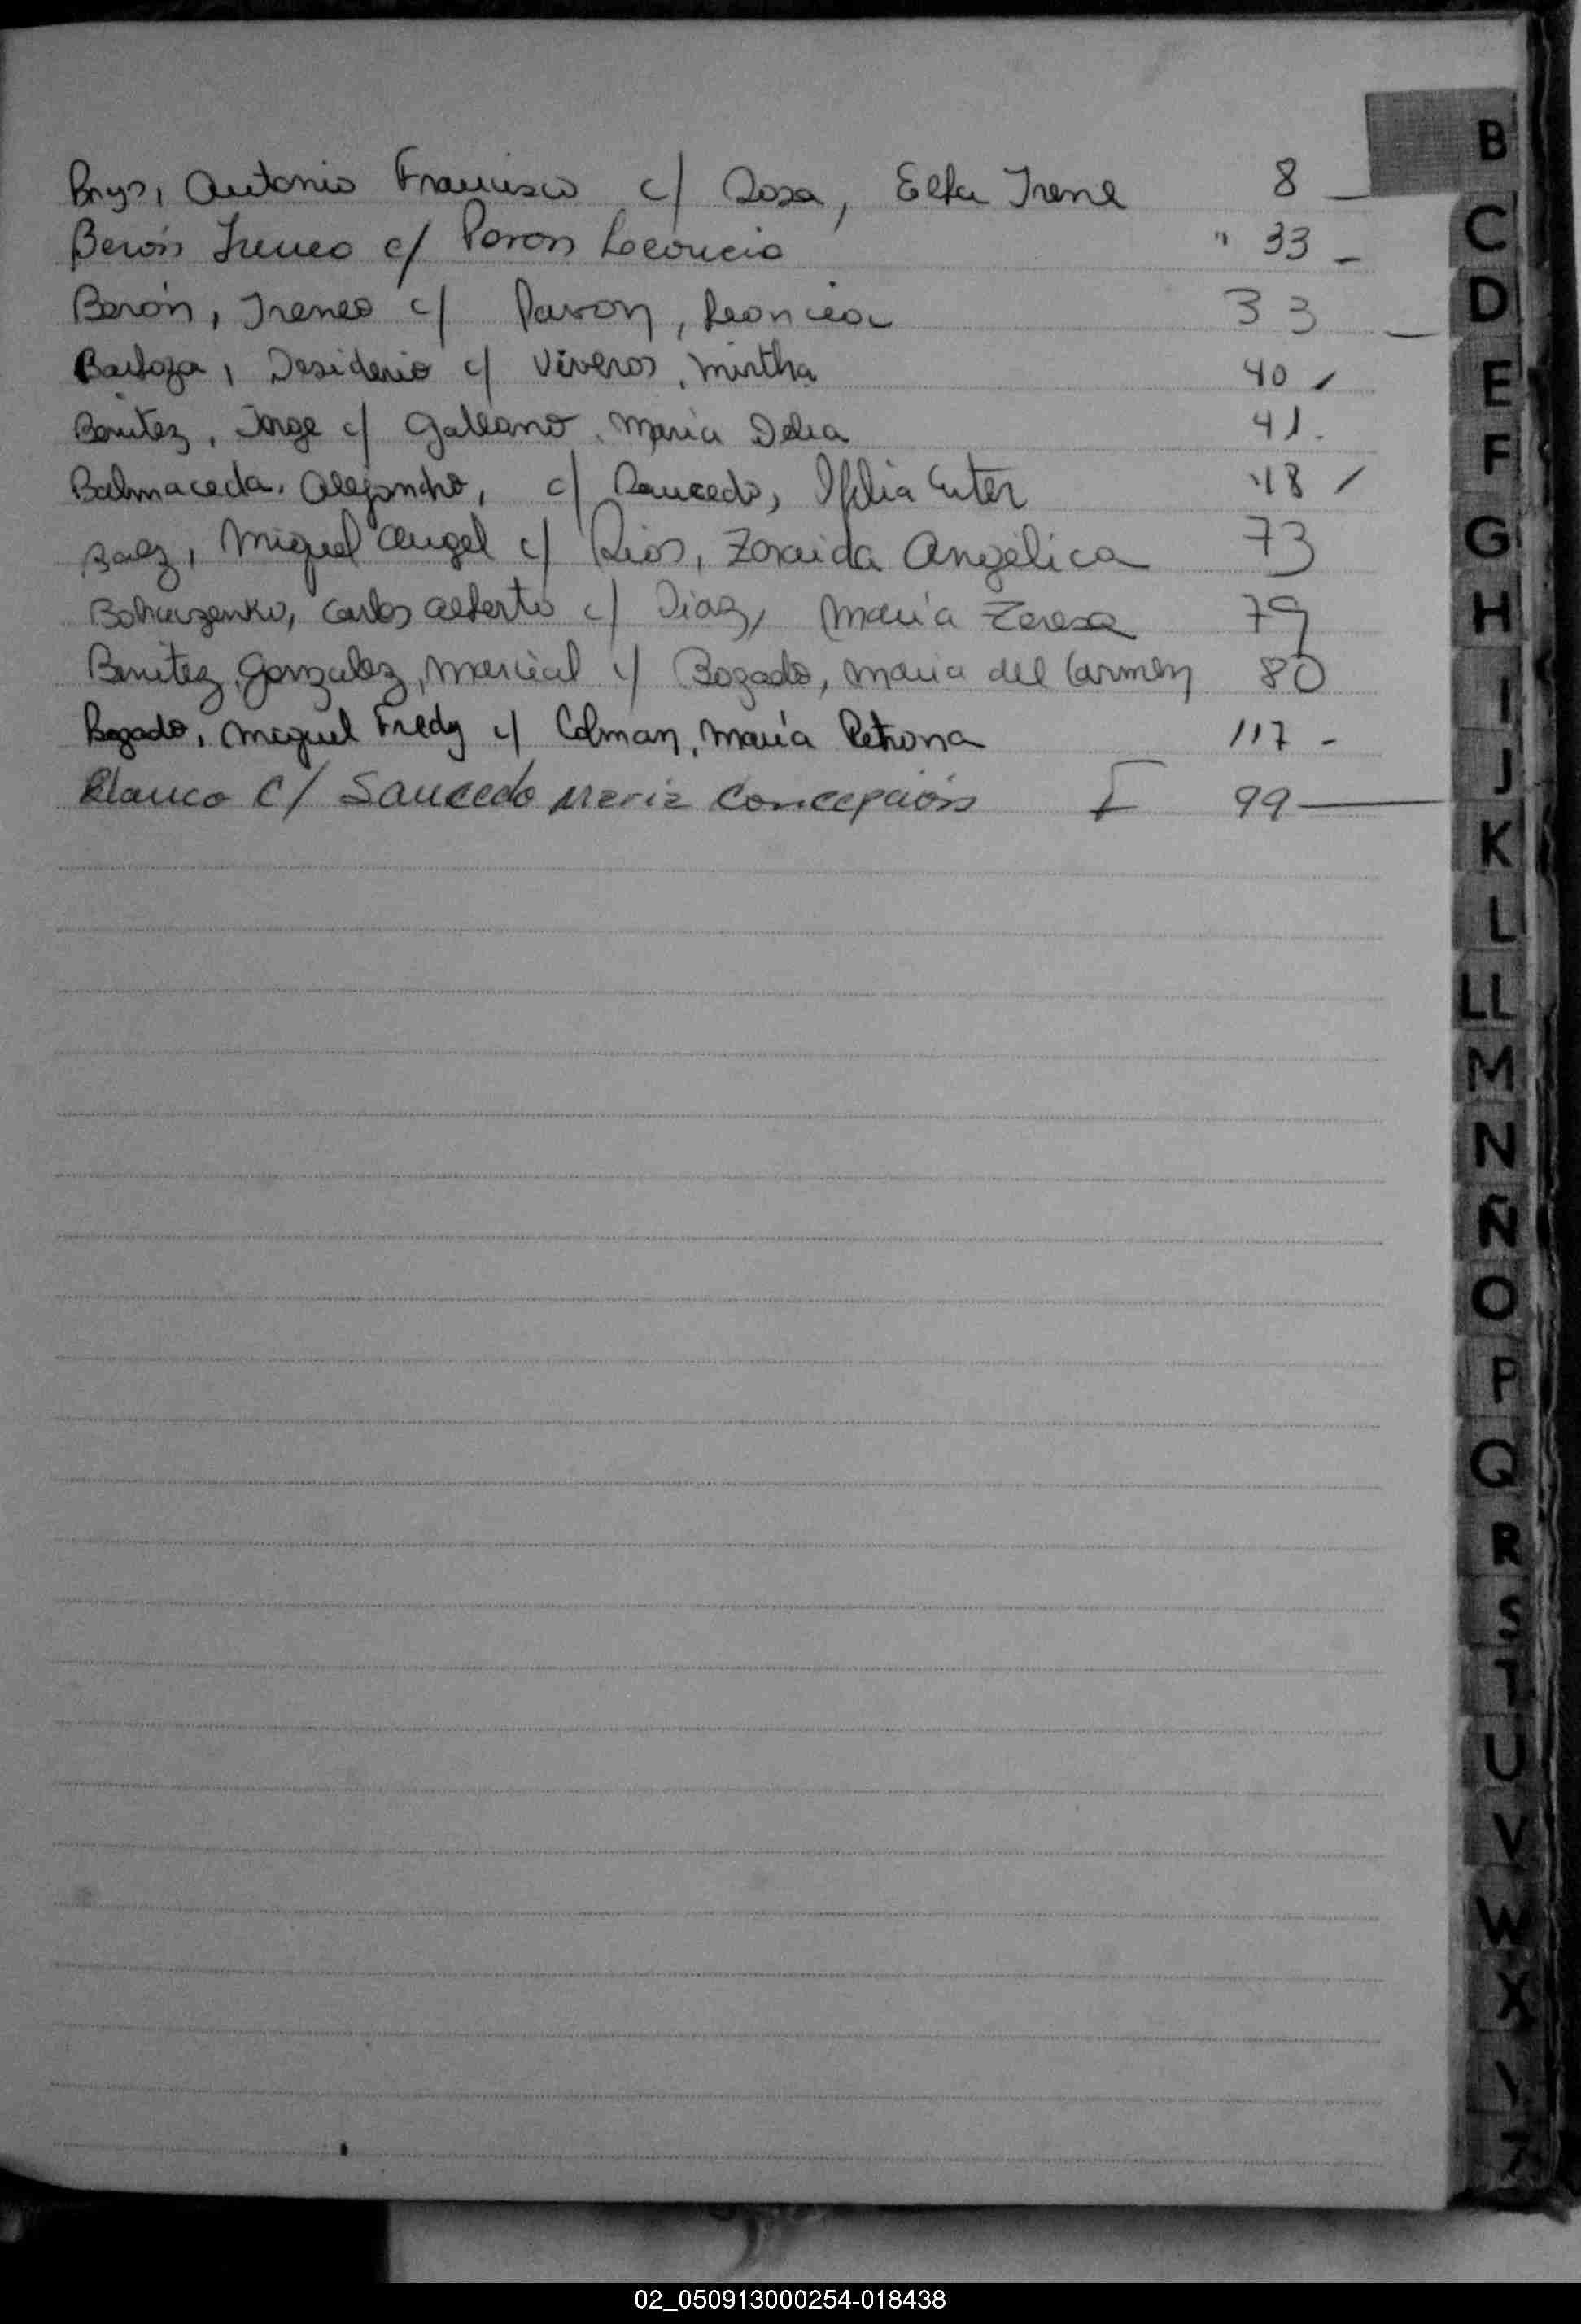 Brys, Antonio Francisco c/ Sosa, Elfa Irene 8 —
Berón Ireneo c/ Pavon Leoncia " 33 –
Berón, Ireneo c/ Pavon, Leoncia 33 —
Barboza, Desiderio c/ Viveros, Mirtha 40
Benitez, Jorge c/ Galeano, Maria Delia 41.
Balmaceda, Alejandro, c/ Saucedo, Ester 48
Baez, Miguel Angel c/ Rios, Zoraida Angélica 73
Carlos Alberto c/ Diaz, María Teresa 79
Benitez, Gonzalez, Marcial c/ Bogado, Maria del Carmen 80
Bogado, Miguel Fredy c/ Colman, María Petrona 117 -
Blanco C/ Saucedo Maria Concepción 99 —
B
C
D
E
F
G
H
I
J
K
L
LL
M
N
Ñ
O
P
Q
R
S
T
U
V
W
X
Y
Z
02_050913000254-018438